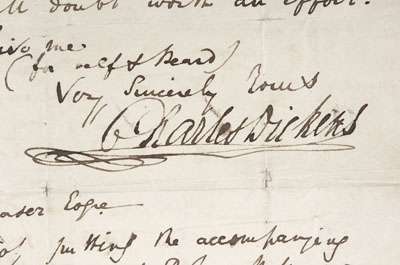 ll doubt worth an effort.
ive me
(for self & Beard)
Very Sincerely Yours
Charles Dickens
aser Esqre
putting the accompanying